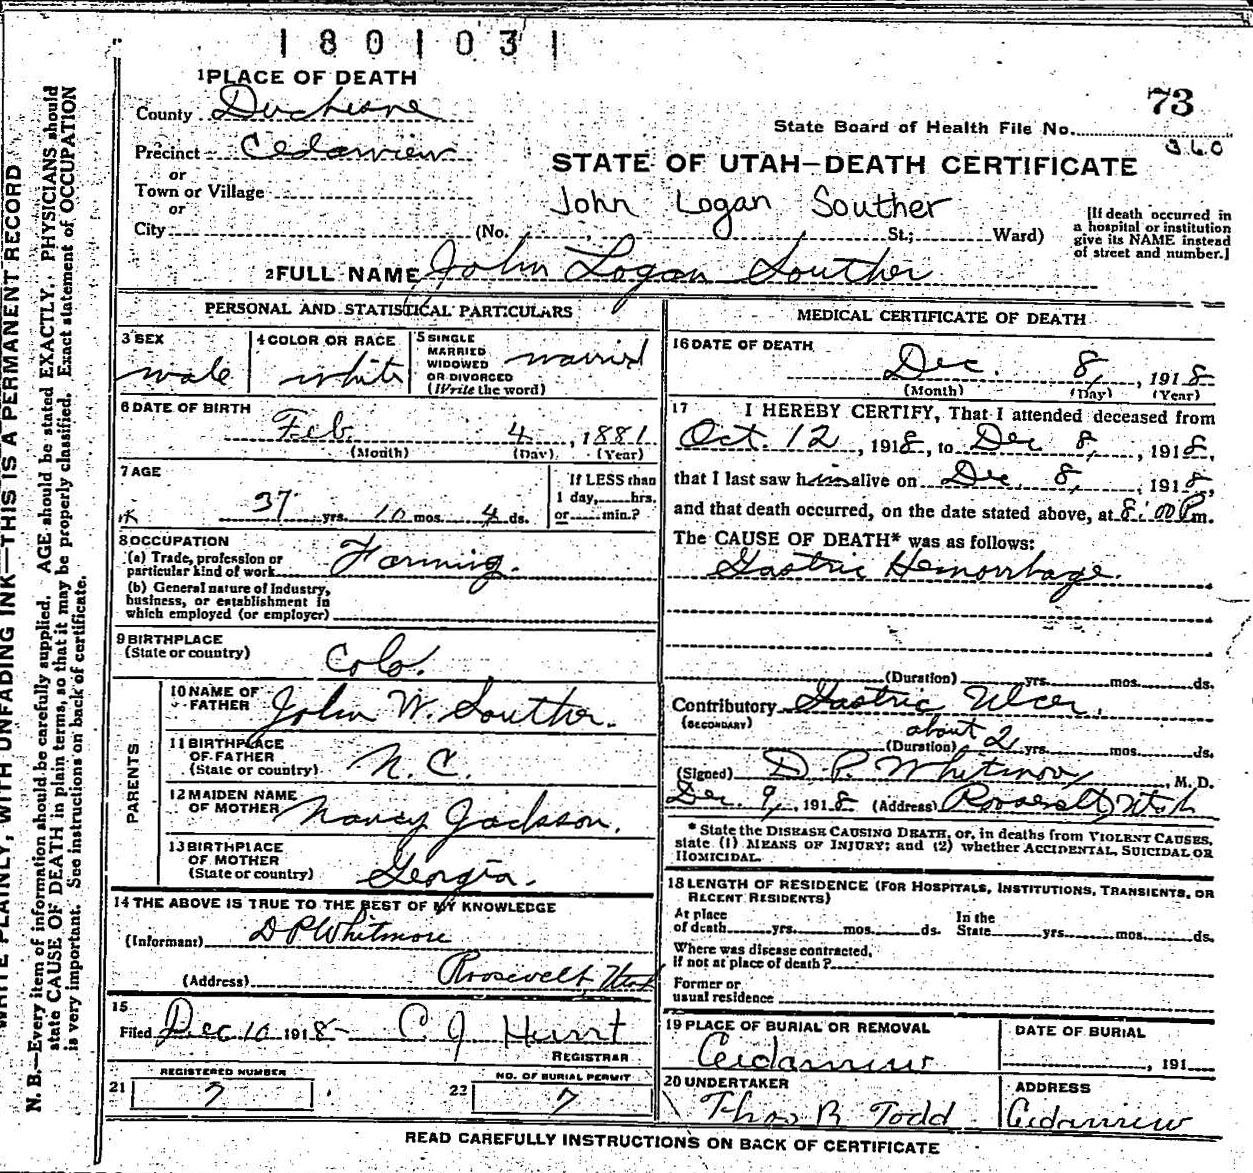 1801031
1 PLACE OF DEATH
County Duchesne
73
State Board of Health File No.
360
Precinct Cedarview
STATE OF UTAH—DEATH CERTIFICATE
or
Town or Village
John Logan Souther
or
City (No. St.; Ward)
[If death occurred in
a hospital or institution
give its NAME instead
of street and number.]
2 FULL NAME John Logan Souther
PERSONAL AND STATISTICAL PARTICULARS
3 SEX
male
4 COLOR OR RACE
white
5 SINGLE
MARRIED
WIDOWED
OR DIVORCED
(Write the word)
married
6 DATE OF BIRTH
Feb 4, 1881
(Month) (Day) (Year)
7 AGE
37 yrs. 10 mos. 4 ds.
If LESS than
1 day, hrs.
or min.?
8 OCCUPATION
(a) Trade, profession or
particular kind of work Farming.
(b) General nature of Industry,
business, or establishment in
which employed (or employer)
9 BIRTHPLACE
(State or country) Colo.
PARENTS
10 NAME OF
FATHER John W. Souther.
11 BIRTHPLACE
OF FATHER
(State or country) N. C.
12 MAIDEN NAME
OF MOTHER Nancy Jackson.
13 BIRTHPLACE
OF MOTHER
(State or country) Georgia.
14 THE ABOVE IS TRUE TO THE BEST OF MY KNOWLEDGE
(Informant) D P Whitmore
(Address) Roosevelt, Utah
15
Filed Dec 10 1918- C J Hunt
REGISTRAR
21 REGISTERED NUMBER
7
22 NO. OF BURIAL PERMIT
7
MEDICAL CERTIFICATE OF DEATH
16 DATE OF DEATH
Dec. 8, , 1918
(Month) (Day) (Year)
17 I HEREBY CERTIFY, That I attended deceased from
Oct. 12 , 1918, to Dec 8, , 1918,
that I last saw him alive on Dec. 8, , 1918,
and that death occurred, on the date stated above, at 8:00 P m.
The CAUSE OF DEATH* was as follows:
Gastric Hemorrhage.
(Duration) yrs. mos. ds.
Contributory Gastric Ulcer.
(SECONDARY)
(Duration) about 2 yrs. mos. ds.
(Signed) D. P. Whitmore, M. D.
Dec. 9, , 1918 (Address) Roosevelt, Utah
* State the DISEASE CAUSING DEATH, or, in deaths from VIOLENT CAUSES,
state (1) MEANS OF INJURY; and (2) whether ACCIDENTAL, SUICIDAL OR
HOMICIDAL.
18 LENGTH OF RESIDENCE (FOR HOSPITALS, INSTITUTIONS, TRANSIENTS, OR
RECENT RESIDENTS)
At place
of death yrs. mos. ds. In the
State yrs. mos. ds.
Where was disease contracted,
if not at place of death?
Former or
usual residence
19 PLACE OF BURIAL OR REMOVAL
Ceidarview
DATE OF BURIAL
, 191
20 UNDERTAKER
Thos B Todd
ADDRESS
Ceidarview
READ CAREFULLY INSTRUCTIONS ON BACK OF CERTIFICATE
WRITE PLAINLY, WITH UNFADING INK—THIS IS A PERMANENT RECORD
N. B.—Every item of information should be carefully supplied. AGE should be stated EXACTLY. PHYSICIANS should
state CAUSE OF DEATH in plain terms, so that it may be properly classified. Exact statement of OCCUPATION
is very important. See instructions on back of certificate.